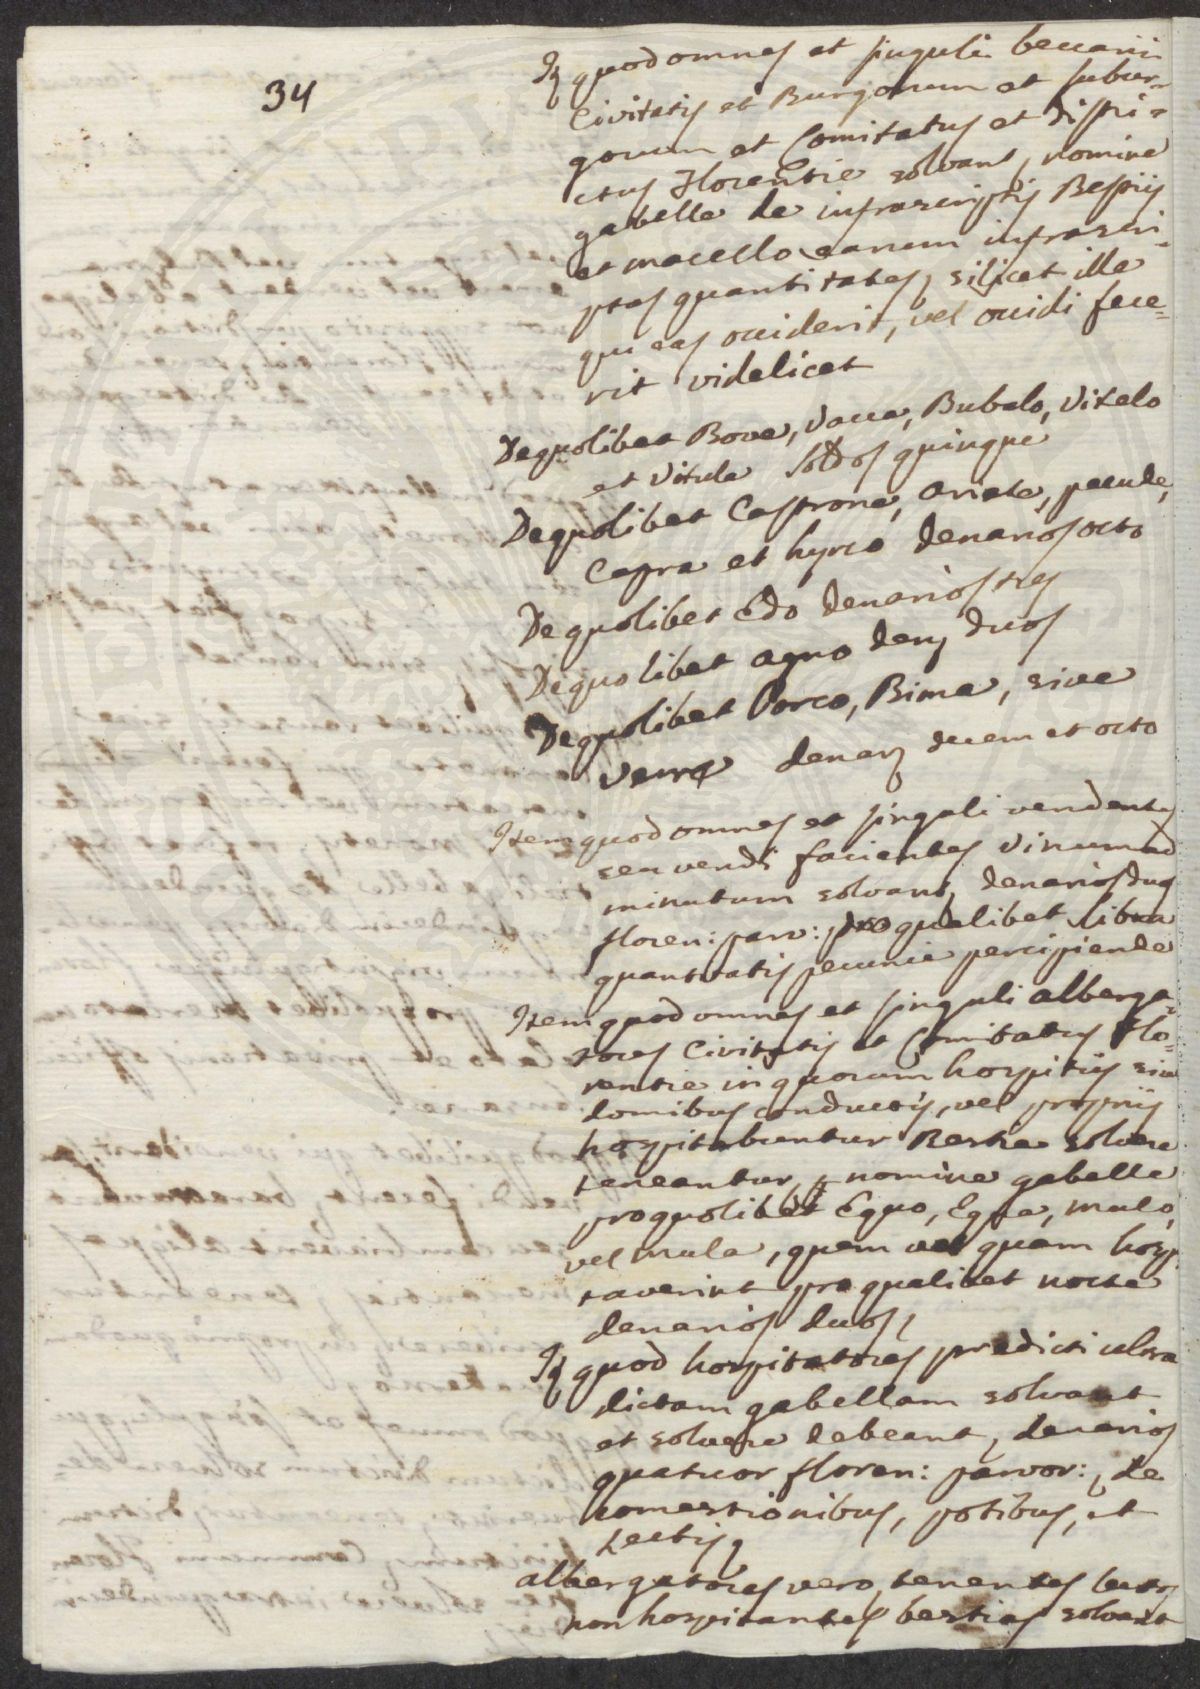 34
It quod omnes et singuli beccarii
Civitatis et Burgorum et subur-
gorum et Comitatus et distri-
ctus Florentie solvant, nomine
gabelle de infrascriptis Bestiis
et macello earum infrascri-
ptas quantitates, silicet ille
qui eas occiderit, vel occidi fece-
rit videlicet
De quolibet Bove, Vacca, Bubalo, Vitelo
et Vitula soldos quinque
De quolibet Castrone, Ariete, pecude,
Capra et hyrco denarios octo
De quolibet Edo denarios tres
De quolibet agno den: duos
De quolibet Porco, Bima, sive
Verro denar: decem et octo
Item quod omnes et singuli vendentes
seu vendi facientes Vinum ad
minutum solvant, denarios duos
floren: parv: pro qualibet libra
quantitatis pecunie percipiende
Item quod omnes et singuli alberga-
tores Civitatis et Comitatus Flo-
rentie in quorum hospitiis sive
domibus conductis, vel propriis
hospitabuntur Bestie solvere
teneantur, nomine gabelle
pro quolibet Equo, Equa, mulo,
vel mula, quem vel quam hosp-
taverint pro qualibet nocte
denarios duos,
It quod hospitatores predicti ultra
dictam gabellam solvant
et solvere debeant, denarios
quatuor floren: parvor: de
comestionibus, potibus, et
Lectis
albergatores vero tenentes lectos
non hospitantes bestias solvant